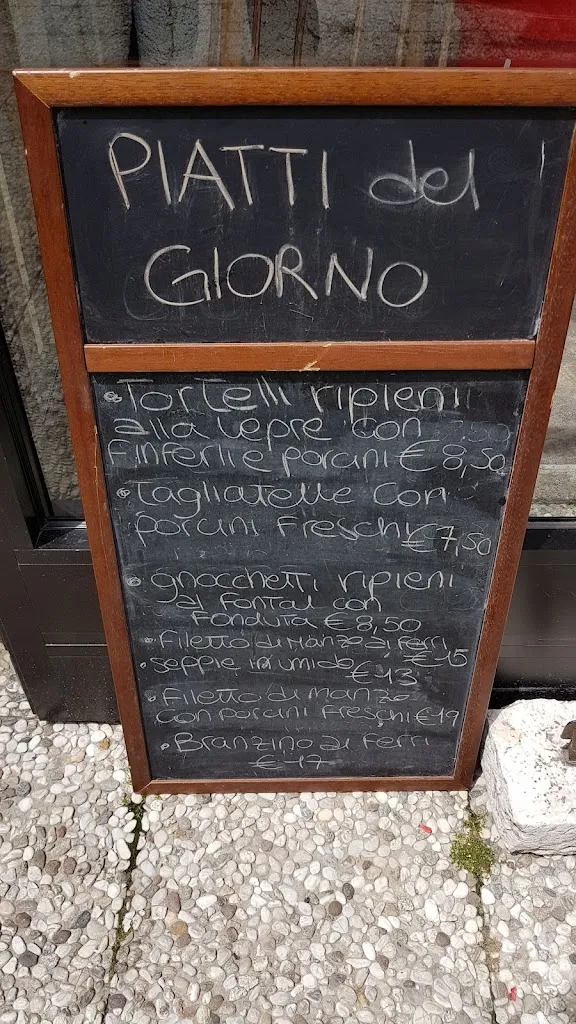 PIATTI del
GIORNO
• Tortelli ripieni
alla lepre con
Finferli e porcini € 8,50
• Tagliatelle con
porcini Freschi € 7,50
• gnocchetti ripieni
al Fontal con
Fonduta € 8,50
• Filetto di Manzo ai Ferri € 15
• Seppie in umido € 13
• Filetto di manzo
con porcini Freschi € 19
• Branzino ai Ferri
€ 17